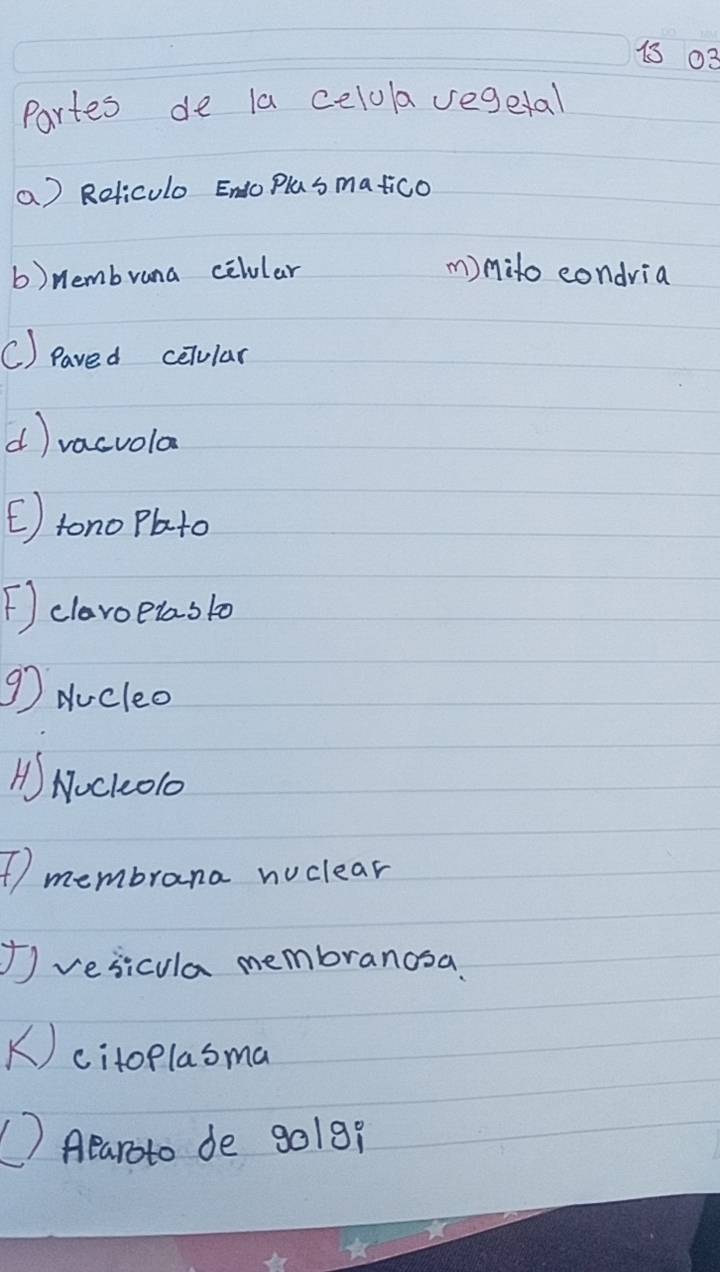 13 03
Partes de la celula vegetal
a) Reticulo Endo Plasmatico
b) Membrana celular
m) Mito condria
c) Pared celular
d) vacuola
E) tono Plato
F) cloroplasto
g) Nucleo
H) Nucleolo
I) membrana nuclear
J) vesicula membranosa.
K) citoplasma
L) Aparoto de golgi